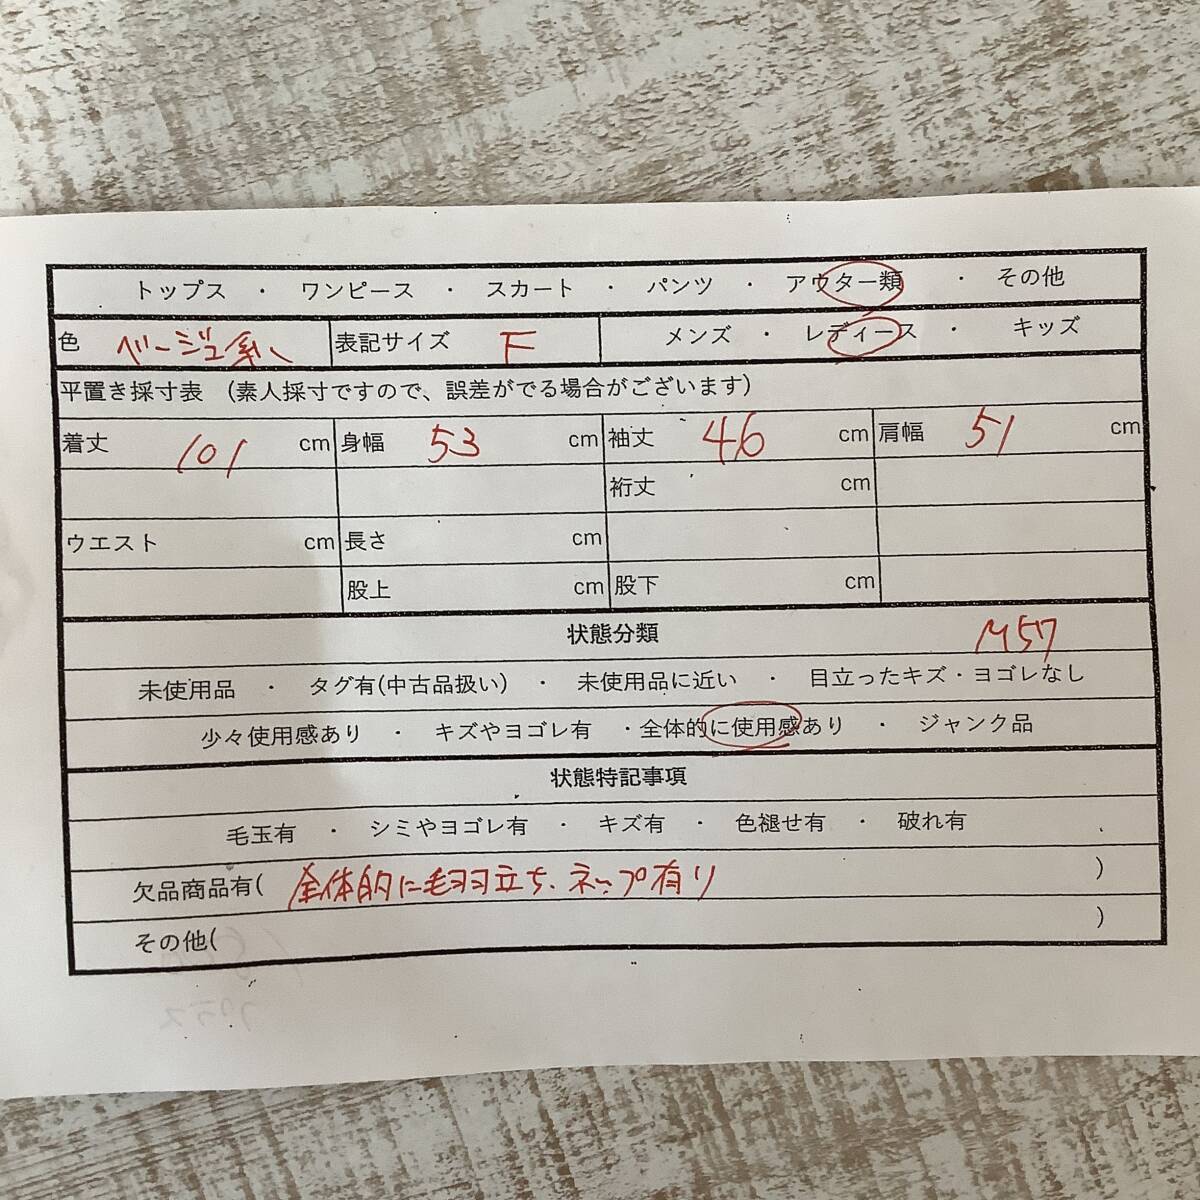 トップス ・ ワンピース ・ スカート ・ パンツ ・ アウター類 ・ その他
色 ベージュ系 表記サイズ F メンズ ・ レディース ・ キッズ
平置き採寸表 (素人採寸ですので、誤差がでる場合がございます)
着丈 101 cm 身幅 53 cm 袖丈 46 cm 肩幅 51 cm
裄丈 cm
ウエスト cm 長さ cm
股上 cm 股下 cm
状態分類 M57
未使用品 ・ タグ有(中古品扱い) ・ 未使用品に近い ・ 目立ったキズ・ヨゴレなし
少々使用感あり ・ キズやヨゴレ有 ・全体的に使用感あり ・ ジャンク品
状態特記事項
毛玉有 ・ シミやヨゴレ有 ・ キズ有 ・ 色褪せ有 ・ 破れ有
欠品商品有( 全体的に毛羽立ち、ネップ有り )
その他( )